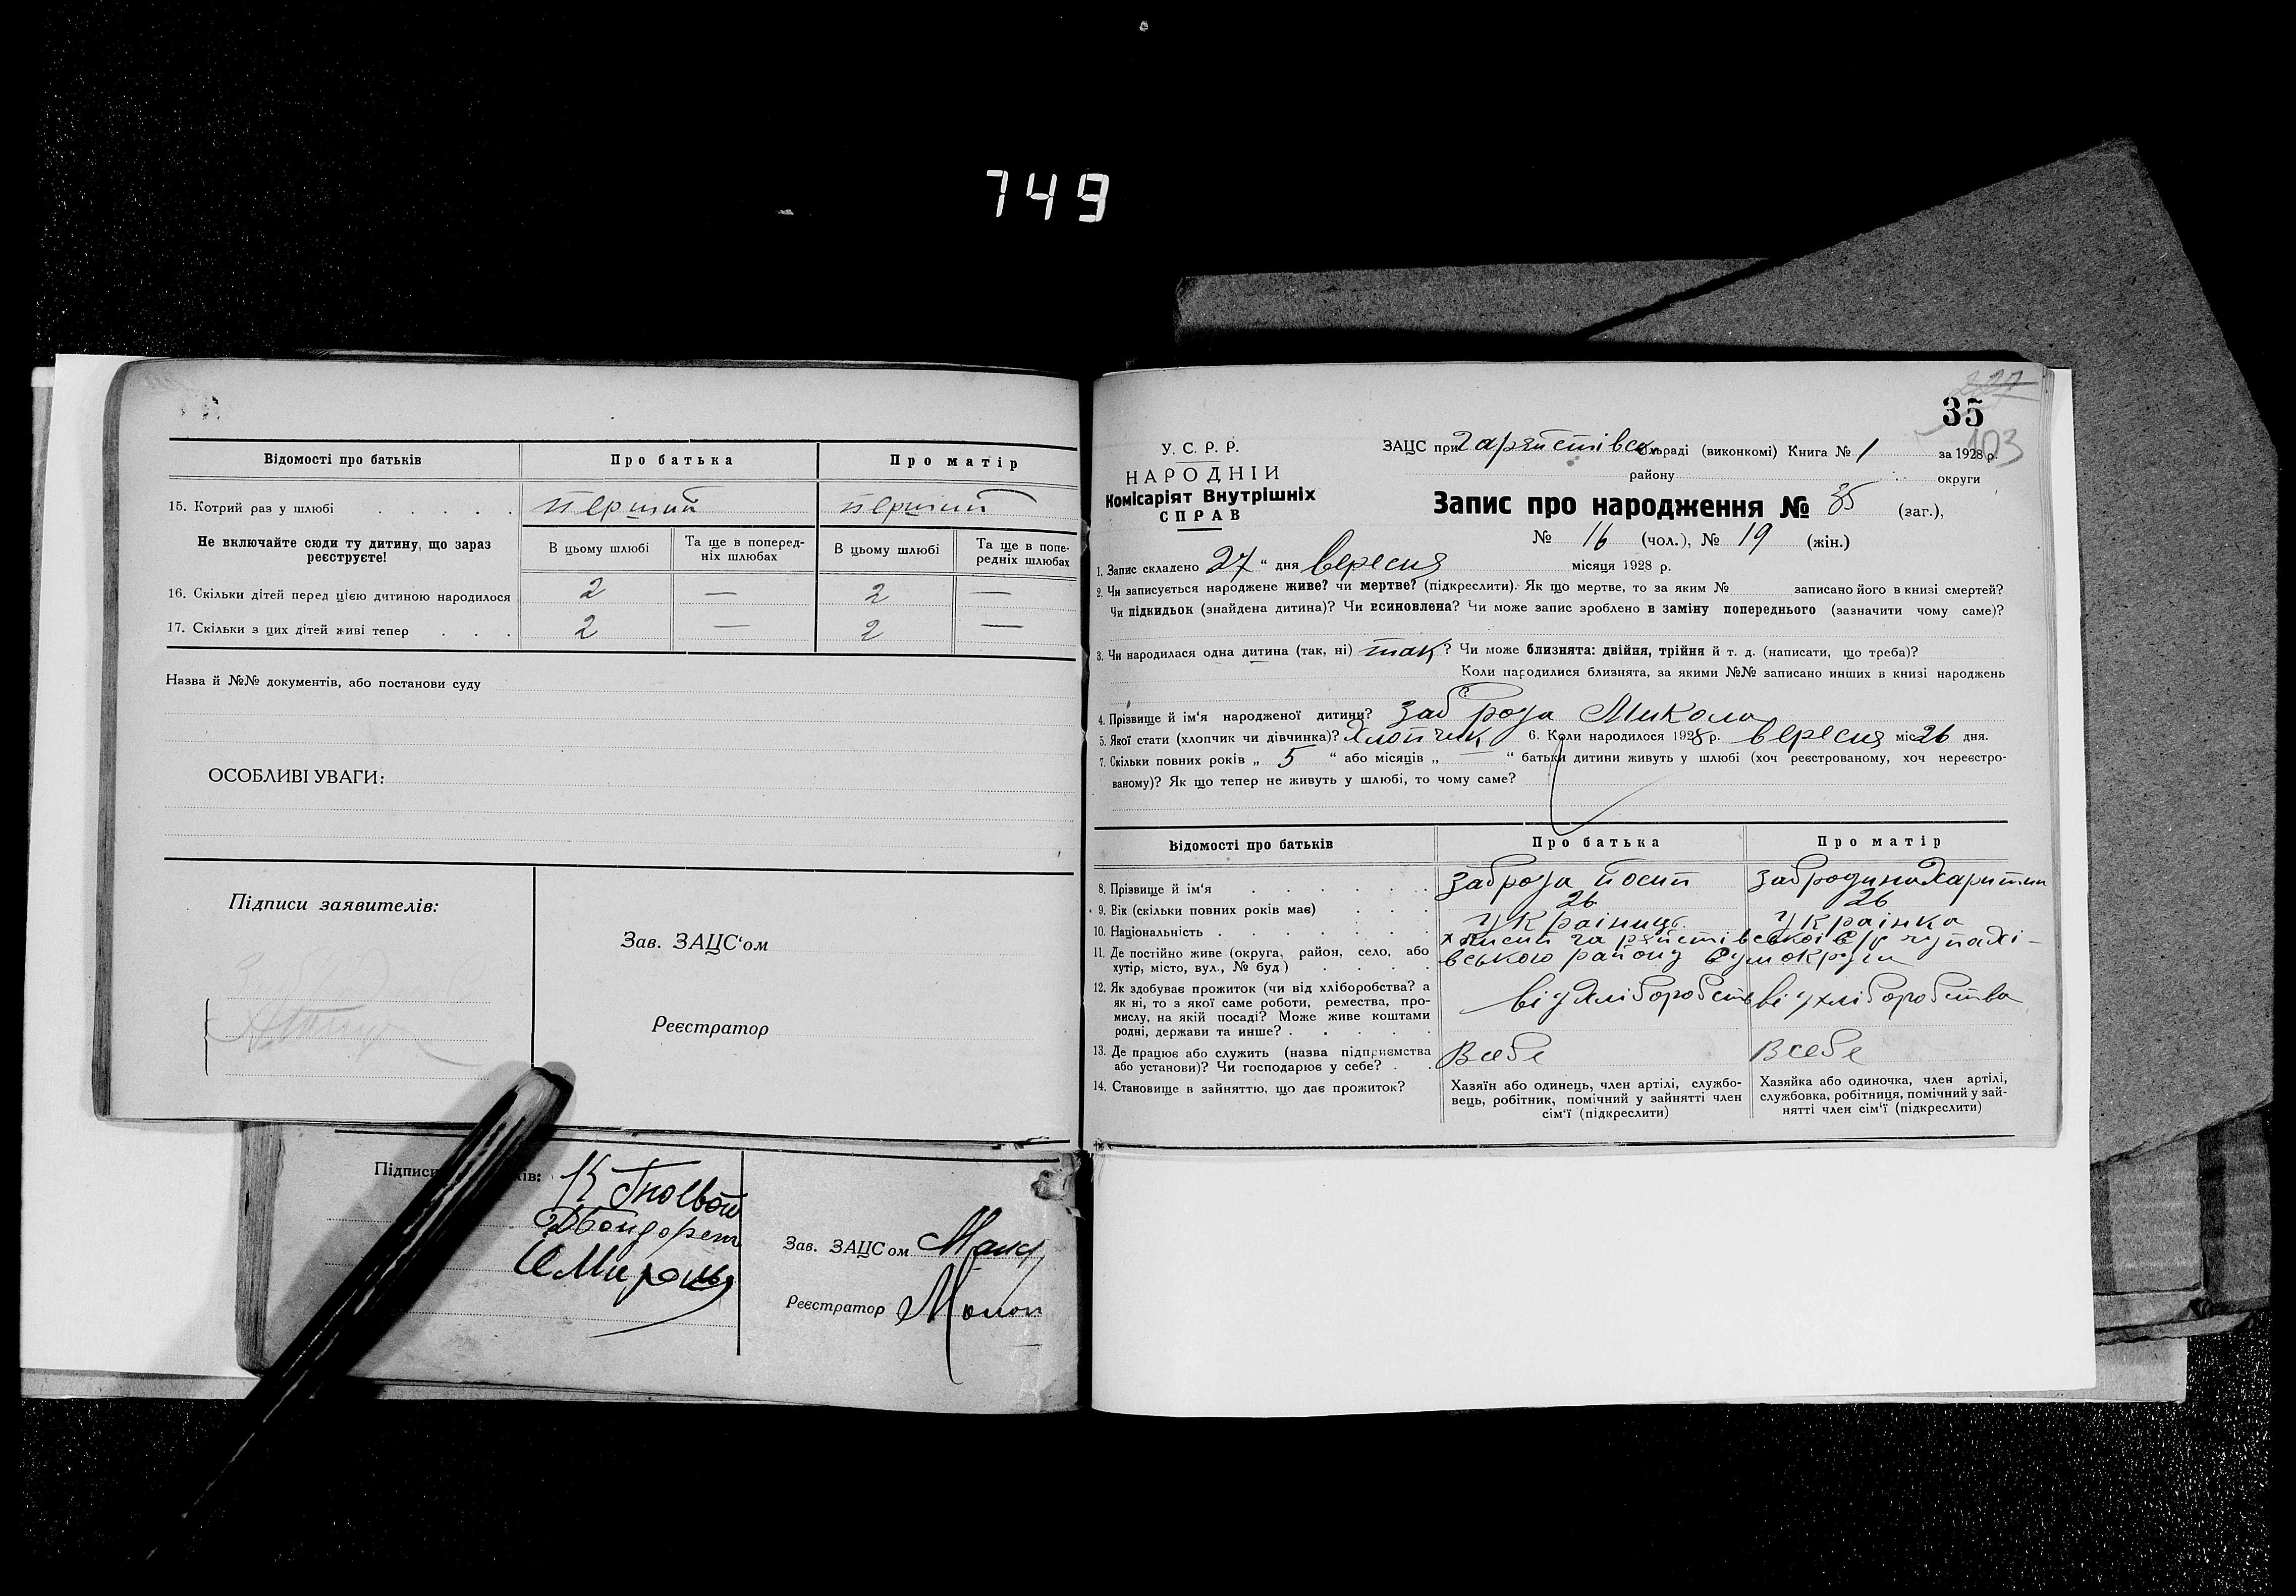 749
Відомості про батьків Про батька Про матір
15. Котрий раз у шлюбі . . . . . перший перший
Не включайте сюди ту дитину, що зараз реєструєте!
В цьому шлюбі Та ще в поперед-ніх шлюбах В цьому шлюбі Та ще в попе-редніх шлюбах
16. Скільки дітей перед цією дитиною народилося 2 — 2 —
17. Скільки з цих дітей живі тепер . . . 2 — 2 —
Назва й №№ документів, або постанови суду
ОСОБЛИВІ УВАГИ:
Підписи заявителів:
Зав. ЗАЦС‘ом
Реєстратор
Підписи ів:
Зав. ЗАЦСом
Реєстратор
227
35
103
У. С. Р. Р.
НАРОДНІЙ
Комісаріят Внутрішніх
СПРАВ
ЗАЦС при сільраді (виконкомі) Книга № 1 за 1928 р.
району округи
Запис про народження № 35 (заг.),
№ 16 (чол.), № 19 (жін.)
1. Запис складено 27 “ дня вересня місяця 1928 р.
2. Чи записується народжене живе? чи мертве? (підкреслити). Як що мертве, то за яким № записано його в книзі смертей?
Чи підкидьок (знайдена дитина)? Чи всиновлена? Чи може запис зроблено в заміну попереднього (зазначити чому саме)?
3. Чи народилася одна дитина (так, ні) так? Чи може близнята: двійня, трійня й т. д. (написати, що треба)?
Коли народилися близнята, за якими №№ записано инших в книзі народжень
4. Прізвище й ім‘я народженої дитини? Заброда Микола
5. Якої стати (хлопчик чи дівчинка)? Хлопчик 6. Коли народилося 1928 р. вересня міс 26 дня.
7. Скільки повних років „ 5 “ або місяців „ — “ батьки дитини живуть у шлюбі (хоч реєстрованому, хоч нереєстро-
ваному)? Як що тепер не живуть у шлюбі, то чому саме?
Відомості про батьків Про батька Про матір
8. Прізвище й ім‘я . . . . . . Заброда Йосип Забродина Харитина
9. Вік (скільки повних років має) . . . 26 26
10. Національність . . . . . . . Українець Українка
11. Де постійно живе (округа, район, село, або
хутір, місто, вул., № буд.) . . . . вського району Сум округи
12. Як здобуває прожиток (чи від хліборобства? а
як ні, то з якої саме роботи, ремества, про-
мислу, на якій посаді? Може живе коштами
родні, держави та инше? . . . . .
від хліборобств від хліборобства
13. Де працює або служить (назва підприємства
або установи)? Чи господарює у себе? . .
В себе В себе
14. Становище в зайняттю, що дає прожиток?
Хазяїн або одинець, член артілі, службо-
вець, робітник, помічний у зайнятті член
сім‘ї (підкреслити)
Хазяйка або одиночка, член артілі,
службовка, робітниця, помічний у зай-
нятті член сім‘ї (підкреслити)